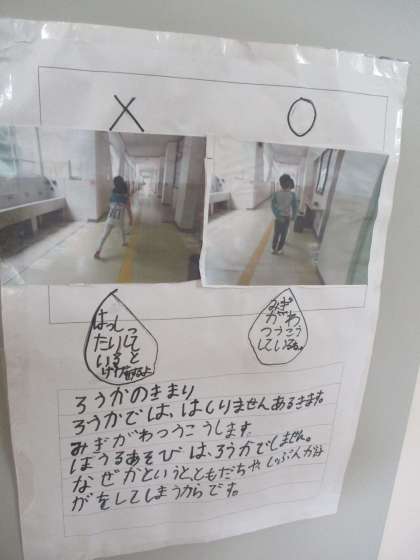 × ○
はしっ
たりして
いると
けが するよ
みぎ
がわ
つうこう
しているね。
ろうかのきまり
ろうかでは、はしりませんあるきます。
みぎがわつうこうします。
ぼうるあそびは、ろうかでしません。
なぜかというと、ともだちや じぶんがけ
がをしてしまうからです。